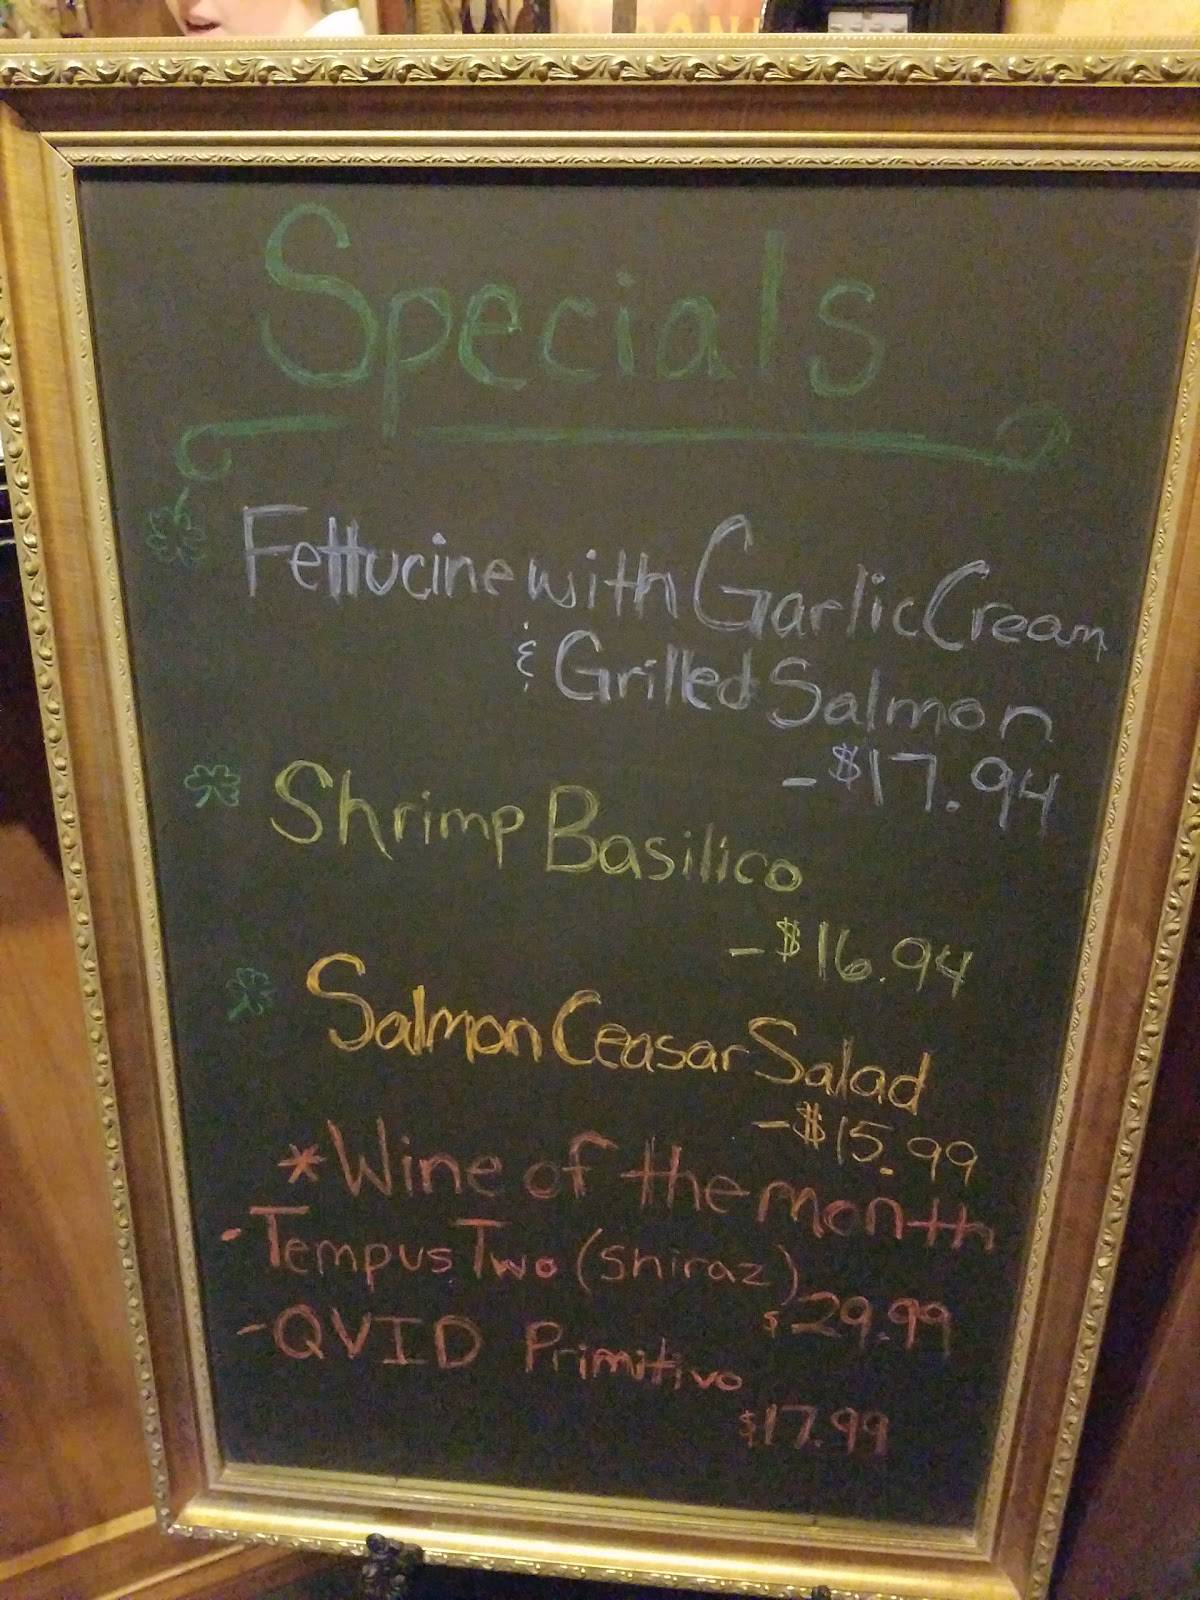 Specials
Fettucine with Garlic Cream
& Grilled Salmon
- $17.94
Shrimp Basilico
- $16.94
Salmon Ceasar Salad
- $15.99
* Wine of the month
- Tempus Two (shiraz)
$29.99
- QVID Primitivo
$17.99